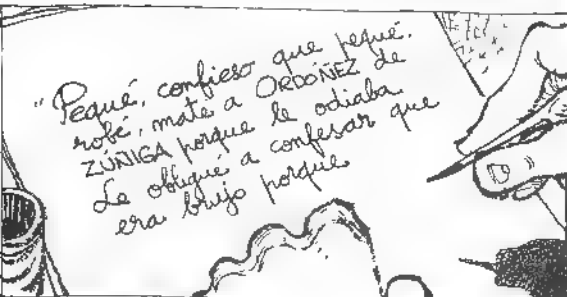 "Pequé, confieso que pequé.
robé, maté a ORDOÑEZ de
ZÚÑIGA porque le odiaba
Le obligué a confesar que
era brujo porque